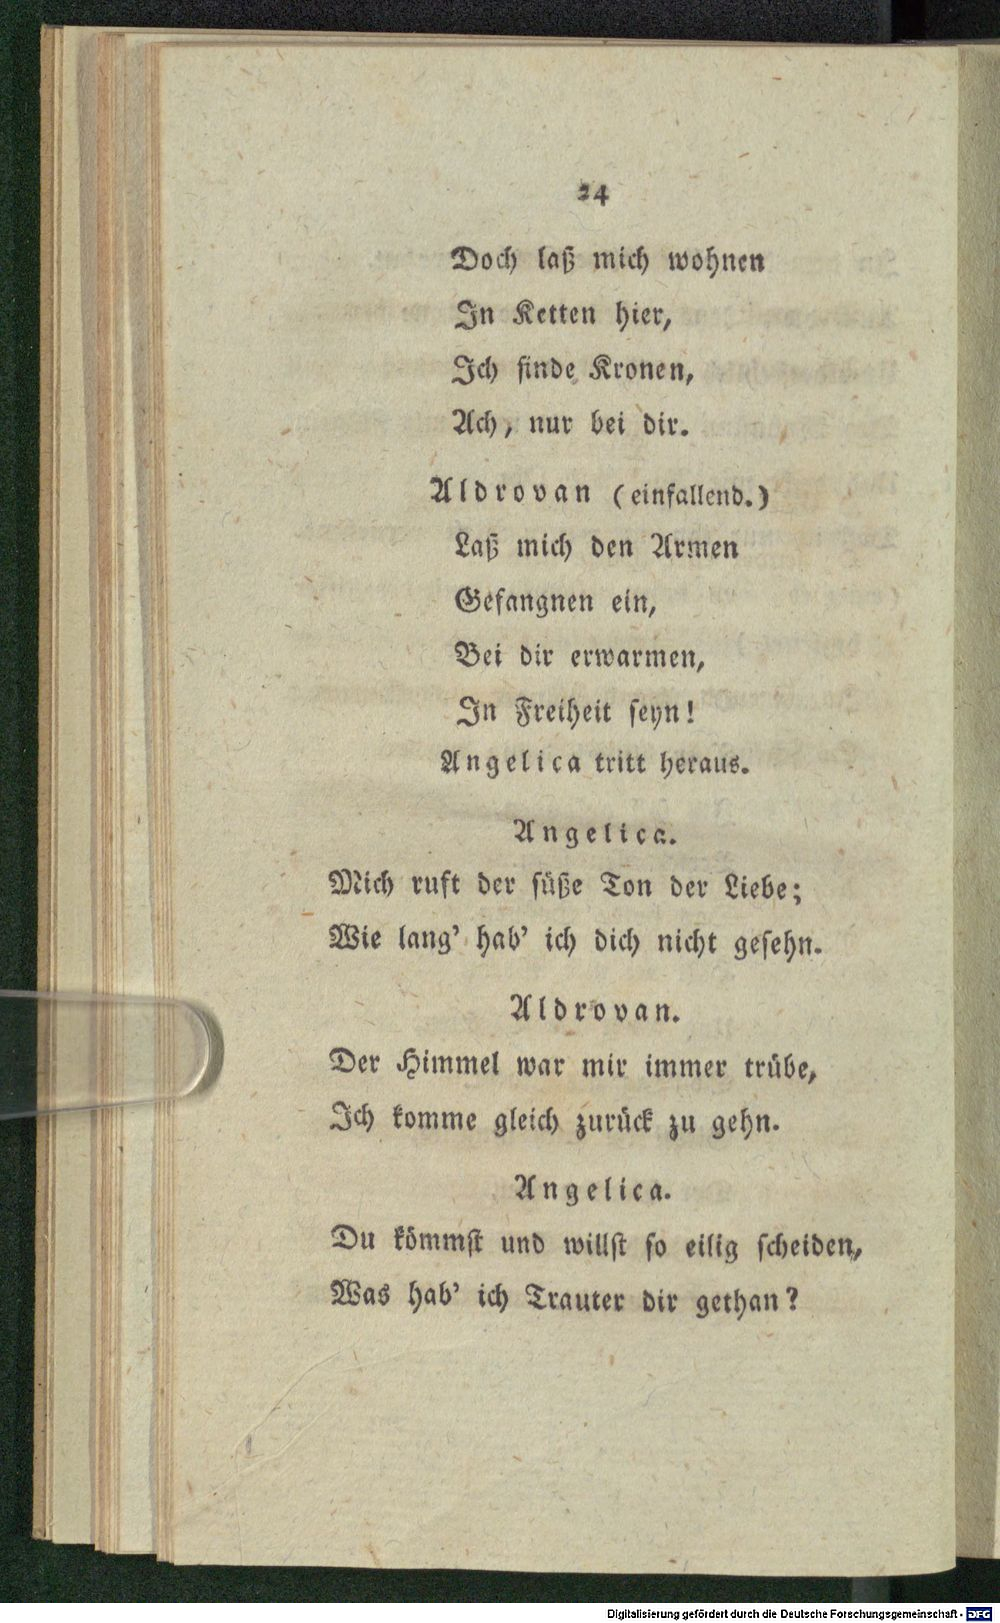 24
Doch laß mich wohnen
In Ketten hier,
Ich finde Kronen,
Ach, nur bei dir.
Aldrovan (einfallend.)
Laß mich den Armen
Gefangnen ein,
Bei dir erwarmen,
In Freiheit seyn!
Angelica tritt heraus.
Angelica.
Mich ruft der süße Ton der Liebe;
Wie lang' hab' ich dich nicht gesehn.
Aldrovan.
Der Himmel war mir immer trübe,
Ich komme gleich zurück zu gehn.
Angelica.
Du kömmst und willst so eilig scheiden,
Was hab' ich Trauter dir gethan?
Digitalisierung gefördert durch die Deutsche Forschungsgemeinschaft - DFG